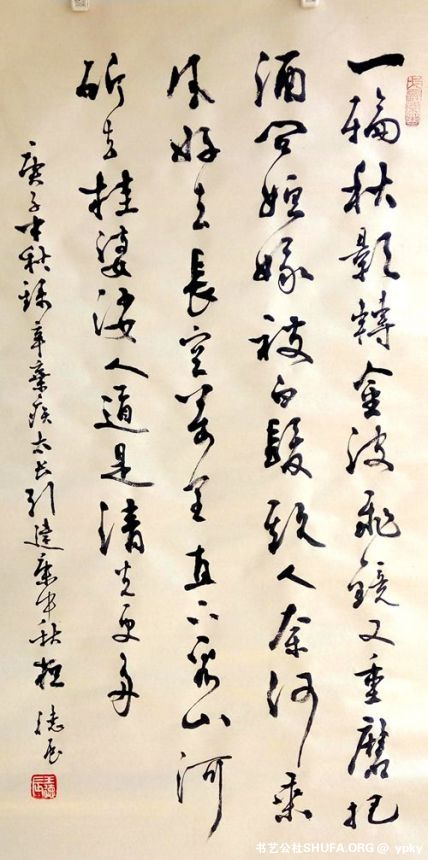 一輪秋影轉金波飛鏡又重磨把
酒問姮娥被白髮欺人奈何乘
風好去長空萬里直下看山河
斫去桂婆娑人道是清光更多
庚子中秋録辛棄疾太长引建康中秋
书艺公社SHUFA.ORG @ ypky